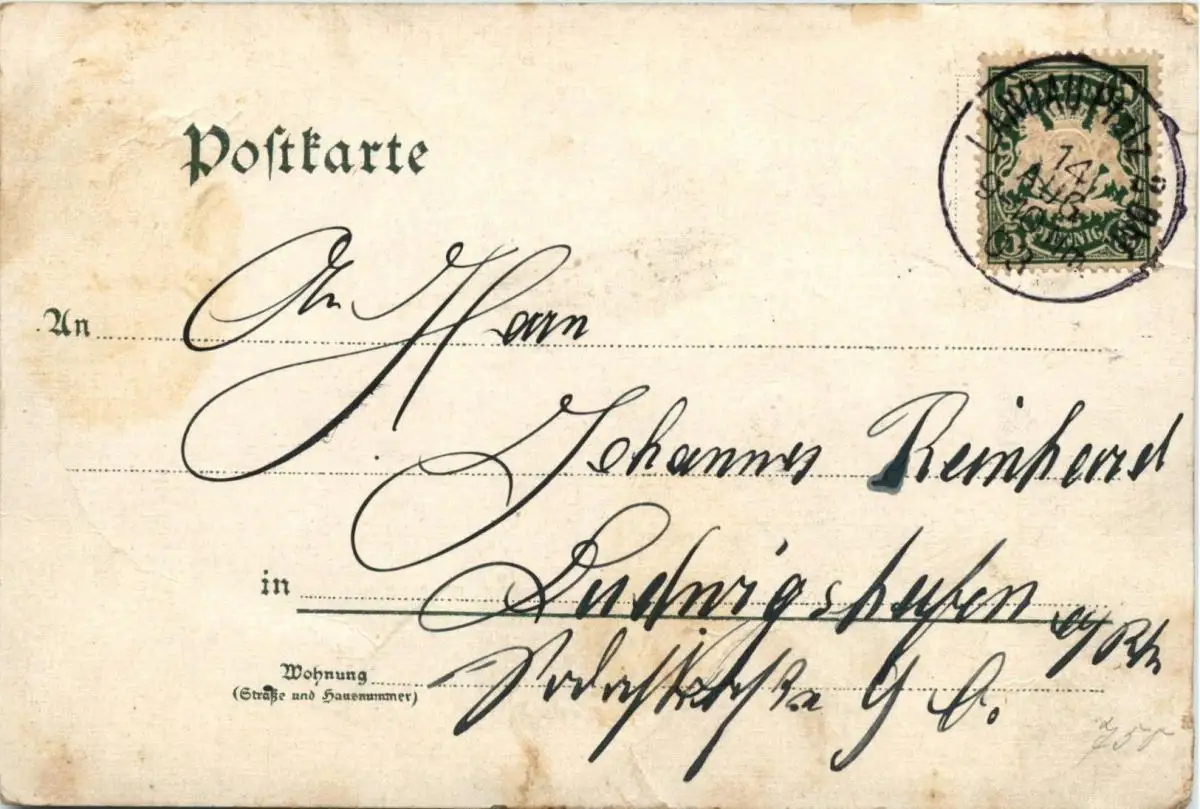 Postkarte
LANDAU PFALZ 2 Bhf.
14
AUG
5 PFENNIG 5
An
An Herrn
Johannes Reinhard
in
Ludwigshafen a/Rh
Wohnung
(Straße und Hausnummer)
9 b.
750